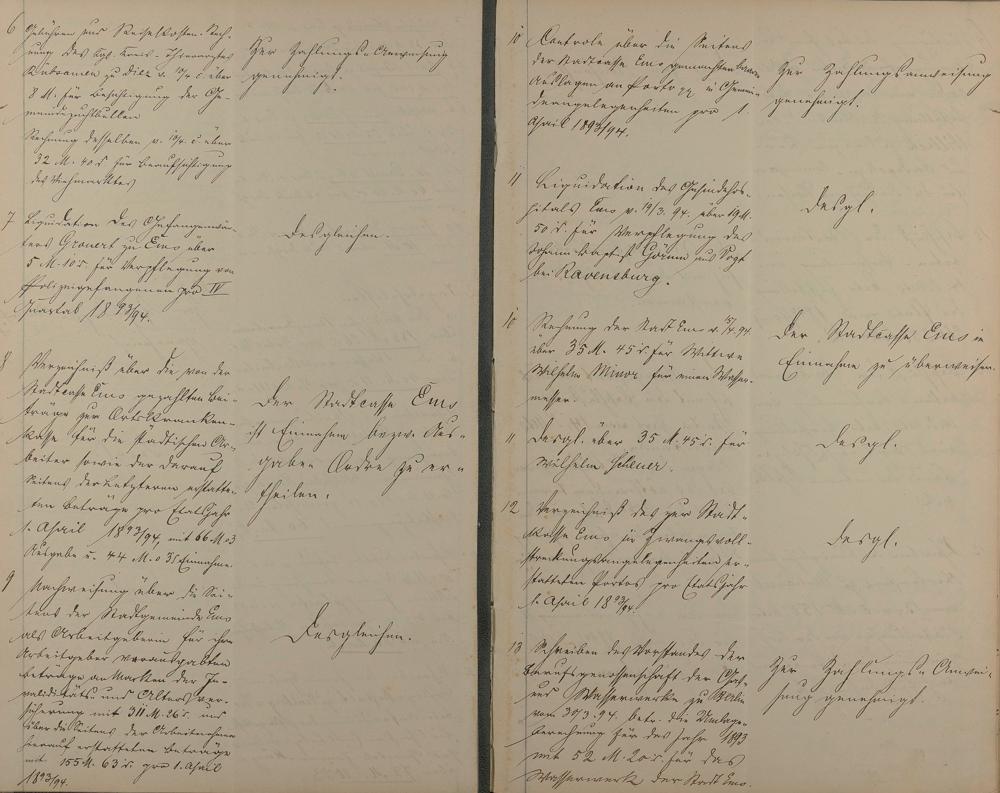 6 Gebühren und Reisekosten-Rech-
nung des Kgl. Kreis-Thierarztes
zu Diez v. 19/4. c. über
8 M. für Besichtigung der Ge-
meindezuchtbullen
Rechnung desselben v. 19/4. c. über
32 M. 40 d für Beaufsichtigung
des Viehmarktes
Zur Zahlungs-Anweisung
genehmigt.
7 Liquidation des Gefangenwär-
ters Grauert zu Ems über
5 M. 10 d. für Verpflegung von
Polizeigefangenen pro IV
Quartal 1893/94.
Desgleichen.
8 Verzeichniß über die von der
Stadtcasse Ems gezahlten Bei-
träge zur Ortskranken-
kasse für die städtischen Ar-
beiter sowie der darauf
Seitens der Letzteren erstatte-
ten Beträge pro Etatsjahr
1. April 1893/94, mit 66 M. 03
Ausgabe u. 44 M. 03 d Einnahme
Der Stadtcasse Ems
ist Einnahme bezw. Aus-
gabe Ordre zu er-
theilen.
9 Nachweisung über die Sei-
tens der Stadtgemeinde Ems
als Arbeitgeberin für ihre
Arbeitgeber verausgabten
Beträge an Marken der In-
validitäts- und Altersver-
sicherung mit 311 M. 26 d. und
über die Seitens der Arbeitnehmer
hierauf erstatteten Beträge
mit 155 M. 63 d. pro 1. April
1893/94.
Desgleichen.
10 Controle über die Seitens
der Stadtcasse Ems gemachten baaren
Auslagen an Porto pp in Gemein-
deangelegenheiten pro 1.
April 1893/94.
Zur Zahlungsanweisung
genehmigt.
11 Liquidation des
hitals Ems v. 19/3. 94. über 19 M.
50 d. für Verpflegung des
Johann Baptist aus Vogt
bei Ravensburg.
Desgl.
10 Rechnung der Stadt Ems v. 94
über 35 M. 45 d. für Wittwe
Wilhelm Minor für einen Wasser-
messer.
Der Stadtcasse Ems in
Einnahme zu überweisen.
11 Desgl. über 35 M. 45 d. für
Wilhelm Scheuer.
Desgl.
12 Verzeichniß des zur Stadt-
kasse Ems in Zwangsvoll-
streckungsangelegenheiten er-
statteten Portos pro Etatsjahr
1. April 1893/94
Desgl.
13 Schreiben des Vorstandes der
Berufsgenossenschaft der Gas-
und Wasserwerke zu Berlin
vom 30/3. 94. betr. die Umlage-
für das Jahr 1893
mit 52 M. 20 d. für das
Wasserwerk der Stadt Ems.
Zur Zahlungs-Anwei-
sung genehmigt.